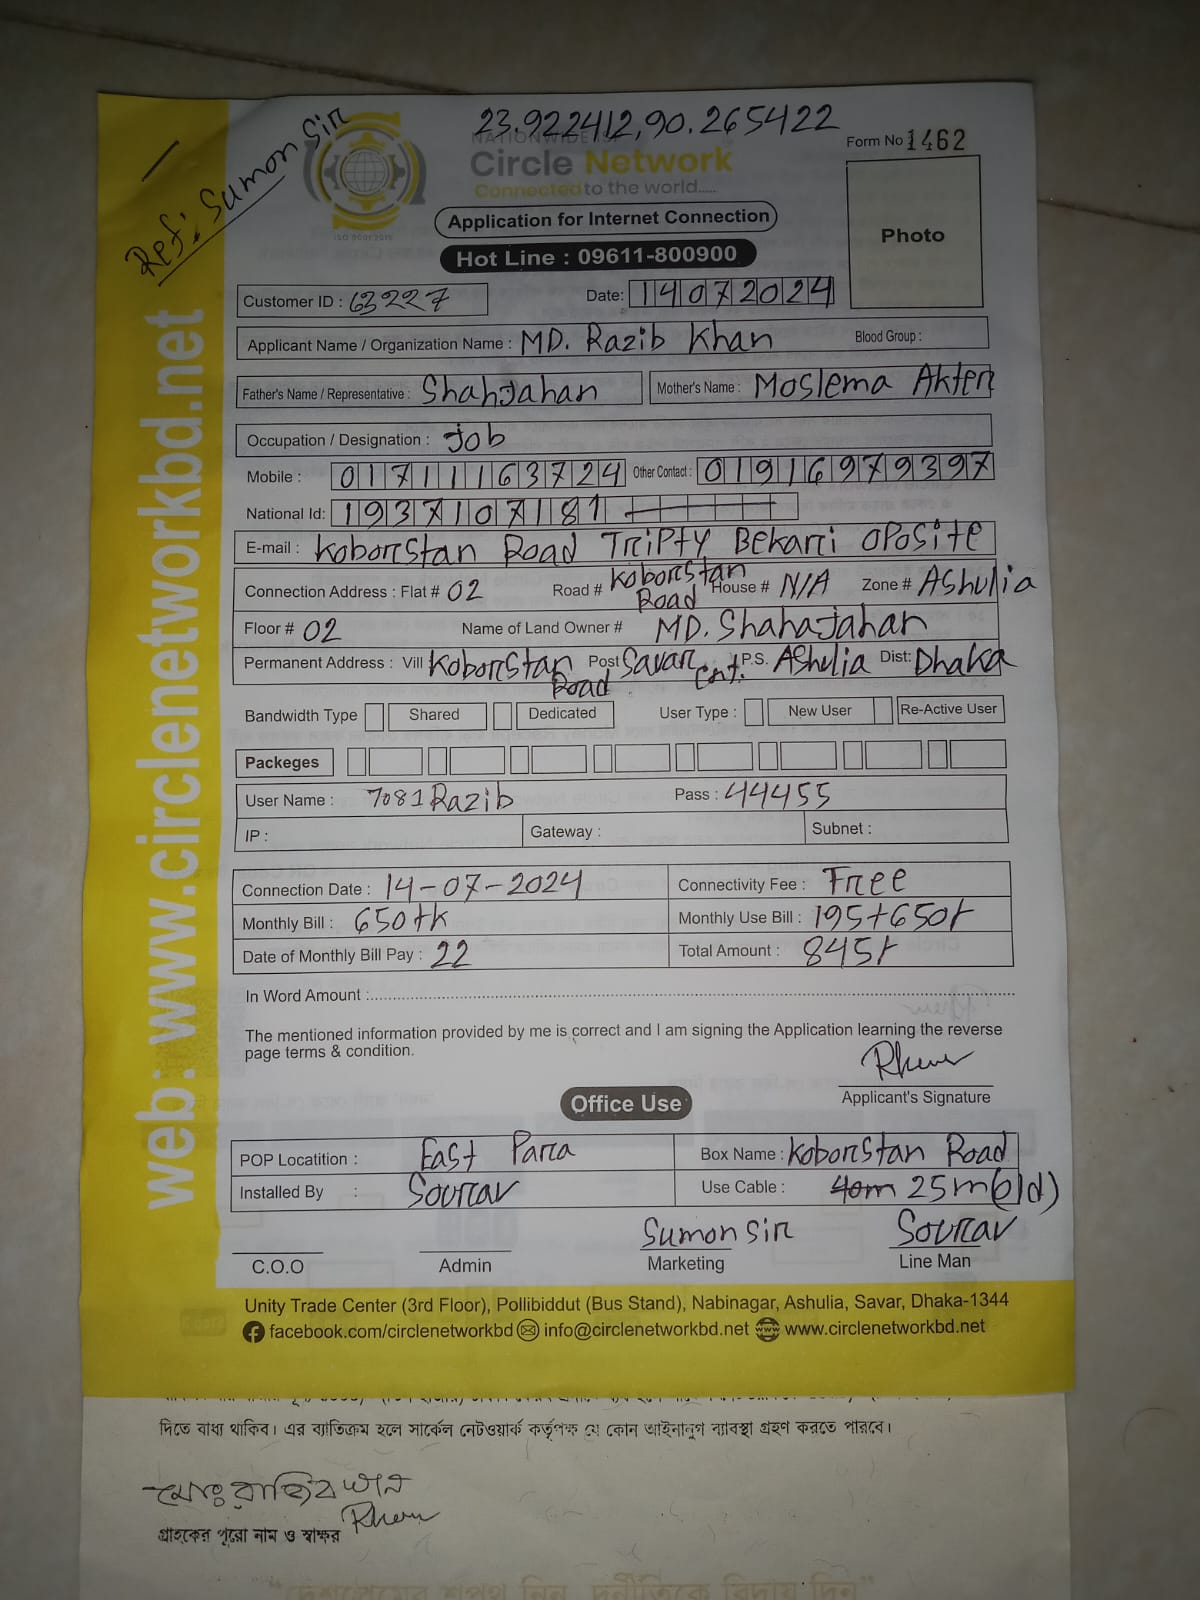 23.922412,90.265422
Ref: Sumon Sir
NATIONWIDE ISP
Circle Network
Connected to the world.....
ISO 9001:2015
Form No 1462
Photo
Application for Internet Connection
Hot Line : 09611-800900
Customer ID : 63227
Date: 14072024
Applicant Name / Organization Name : MD. Razib Khan Blood Group :
Father's Name / Representative : Shahjahan Mother's Name : Moslema Akter
Occupation / Designation : Job
Mobile : 01711163724 Other Contact : 01916979397
National Id: 1937107181
E-mail : Koborstan Road Tripty Bekari Oposite
Connection Address : Flat # 02 Road # Koborstan Road House # N/A Zone # Ashulia
Floor # 02 Name of Land Owner # MD. Shahajahan
Permanent Address : Vill Koborstan Road Post Savar Cnt. P.S. Ashulia Dist: Dhaka
Bandwidth Type Shared Dedicated User Type : New User Re-Active User
Packeges
User Name : 7081Razib Pass : 44455
IP : Gateway : Subnet :
Connection Date : 14-07-2024 Connectivity Fee : Free
Monthly Bill : 650tk Monthly Use Bill : 195+650/-
Date of Monthly Bill Pay : 22 Total Amount : 845/-
In Word Amount :
The mentioned information provided by me is correct and I am signing the Application learning the reverse
page terms & condition.
Applicant's Signature
Office Use
POP Locatition : East Para Box Name : Koborstan Road
Installed By : Sourav Use Cable : 40m 25m(old)
Sumon Sir Sourav
C.O.O Admin Marketing Line Man
Unity Trade Center (3rd Floor), Pollibiddut (Bus Stand), Nabinagar, Ashulia, Savar, Dhaka-1344
facebook.com/circlenetworkbd info@circlenetworkbd.net www.circlenetworkbd.net
web: www.circlenetworkbd.net
দিতে বাধ্য থাকিব। এর ব্যতিক্রম হলে সার্কেল নেটওয়ার্ক কর্তৃপক্ষ যে কোন আইনানুগ ব্যাবস্থা গ্রহণ করতে পারবে।
মোঃ রাজিব খান
গ্রাহকের পূরো নাম ও স্বাক্ষর
"দেশপ্রেমের শপথ নিন, দুর্নীতিকে বিদায় দিন"